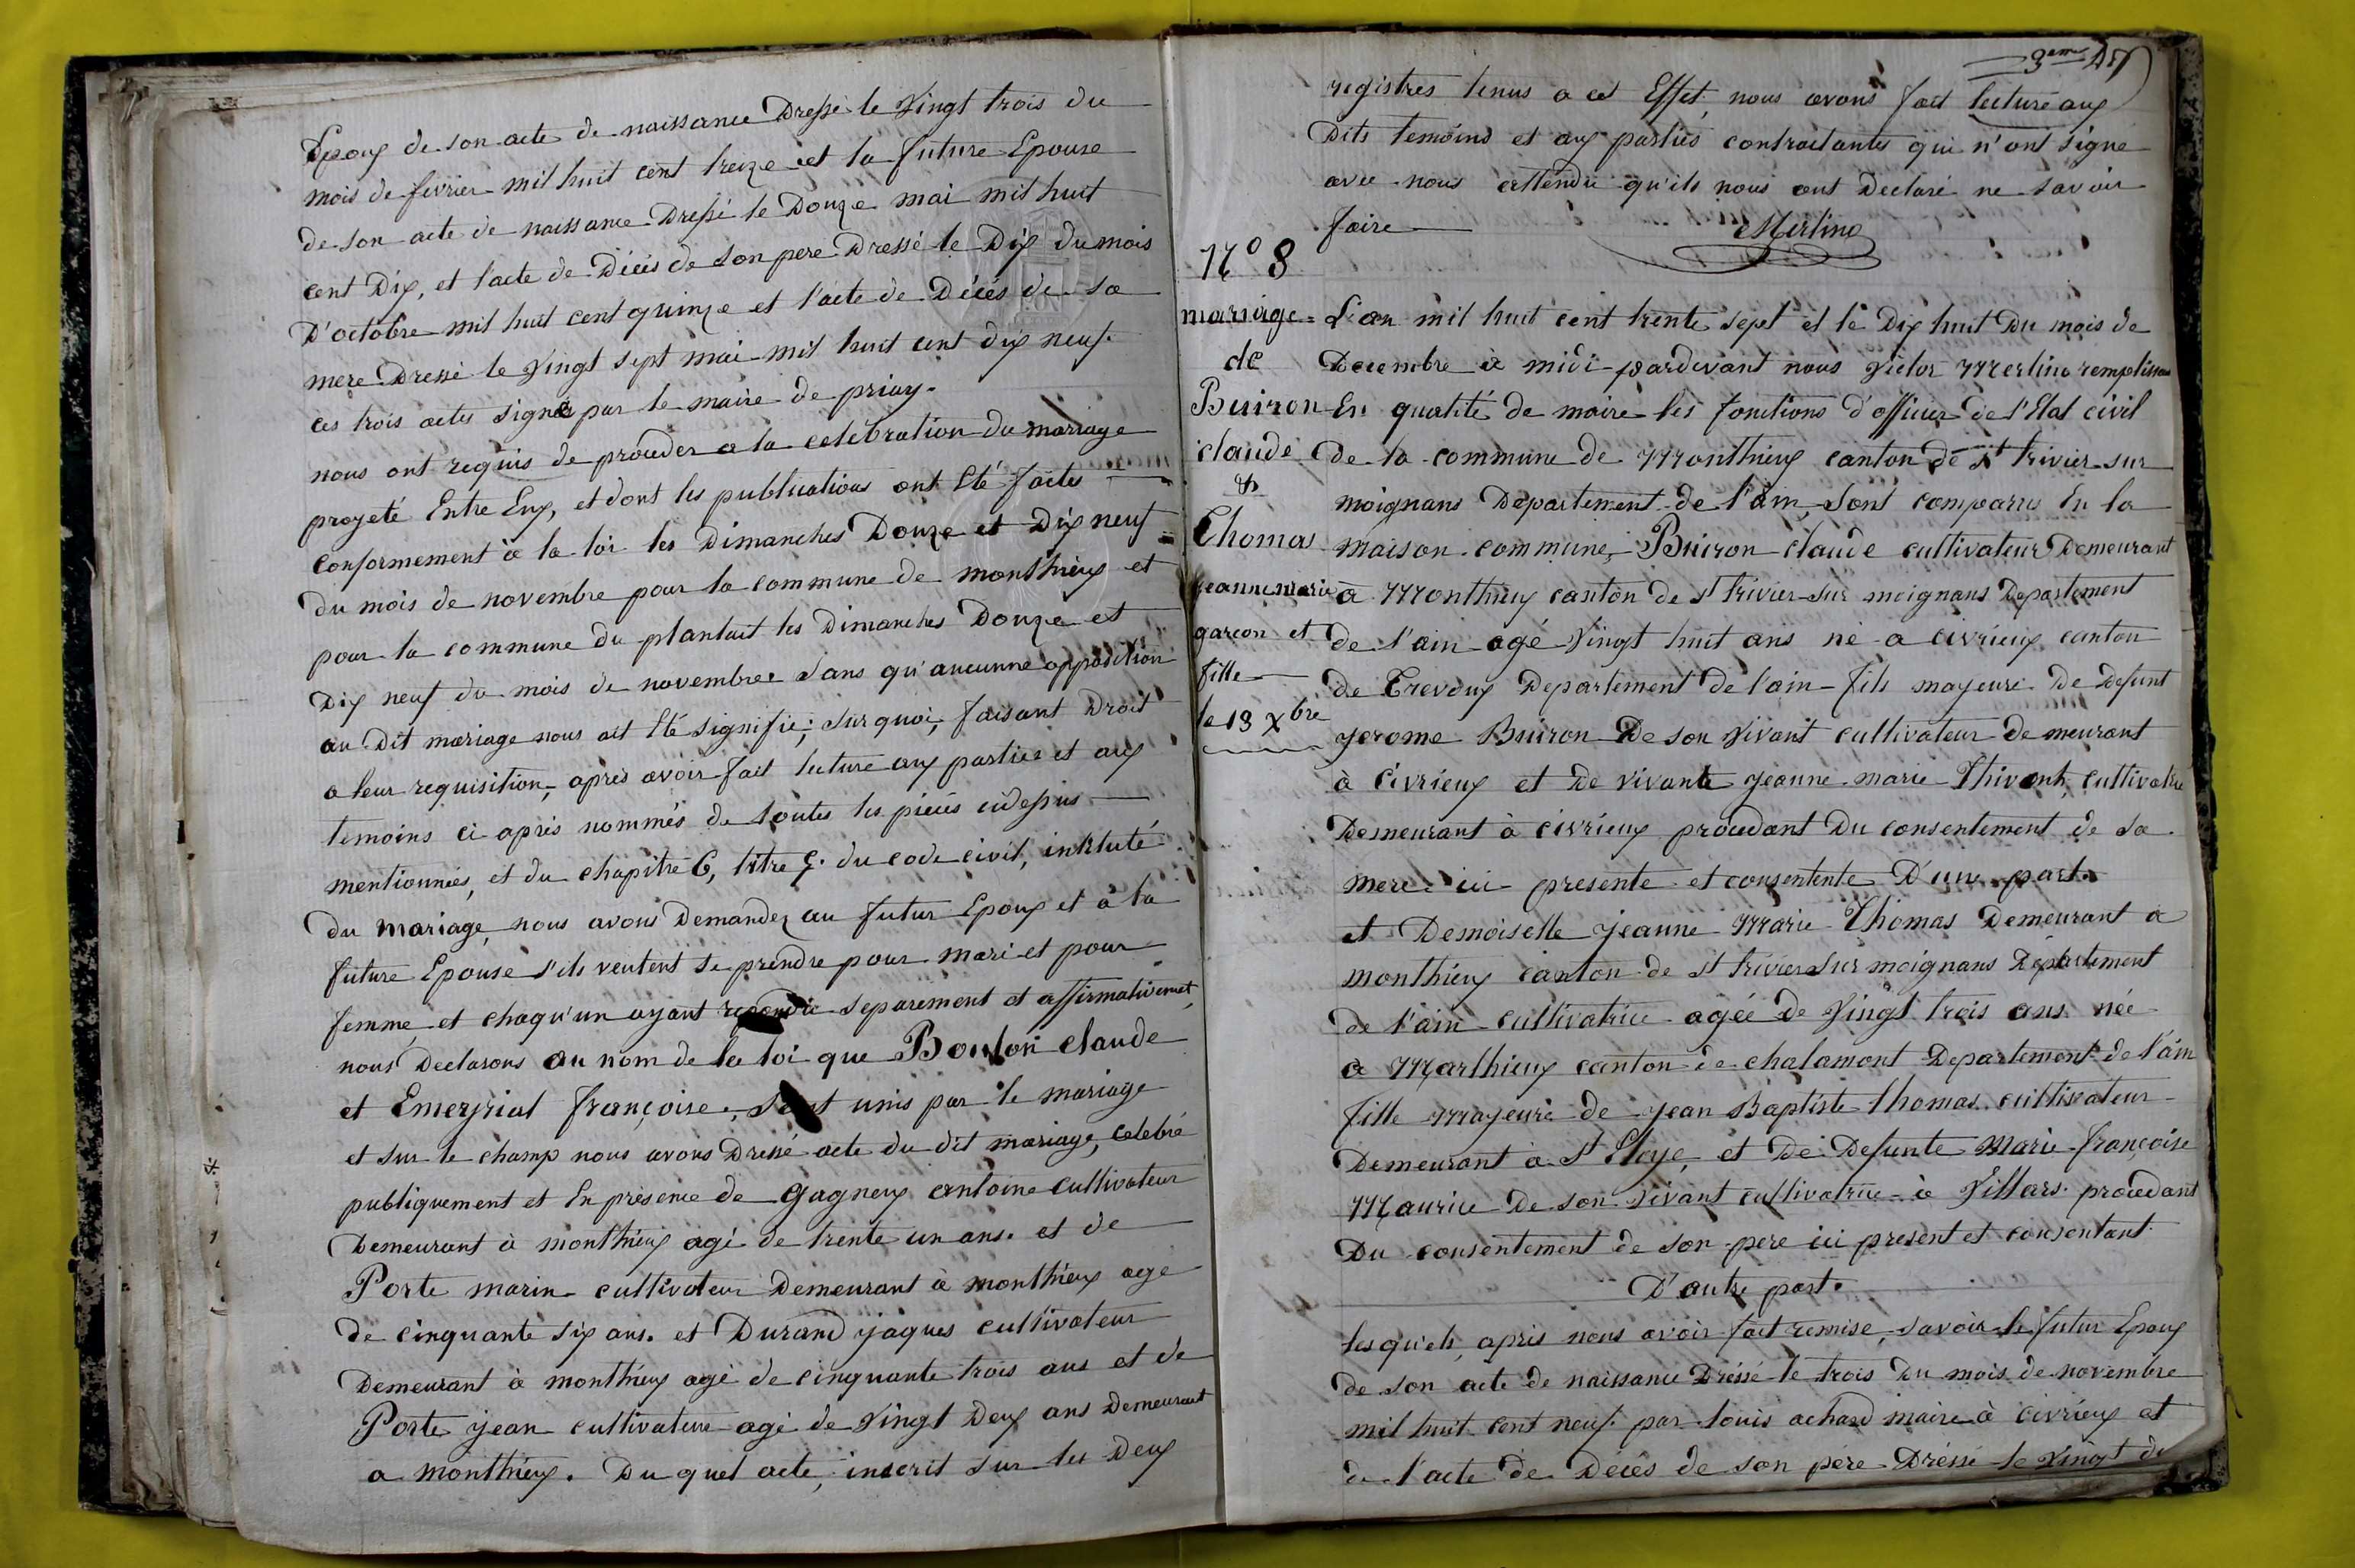 Epoux de son acte de naissance Dressé le Vingt trois du
mois de fevrier mil huit cent treize et la future Epouse
de son acte de naissance Dressé le Douze mai mil huit
cent Dix, et l'acte de Décés de son pere Dressé le Dix du mois
D'octobre mil huit cent quinze et l'acte de Décés de sa
mere Dressé le Vingt sept mai mil huit cent dix neuf.
ces trois actes signés par le maire de priay.
nous ont requis de proceder a la celebration du mariage
projeté Entre Eux, et dont les publications ont Eté faites
conformement à la loi les Dimanches Douze et Dix neuf
Du mois de novembre pour la commune de monthieux et
pour la commune du plantait les Dimanches Douze et
Dix neuf du mois de novembre sans qu'aucunne opposition
au Dit mariage nous ait Eté signifié; sur quoi, faisant Droit
a leur requisition, après avoir fait lecture aux parties et aux
temoins ci après nommés de toutes les piéces cidessus
mentionnées, et du chapitre 6, titre 5. du code civil, intitulé
du mariage, nous avons Demandez au futur Epoux et à la
future Epouse s'ils veulent se prendre pour mari et pour
femme, et chaqu'un ayant repondu separement et affirmativement,
nous Declarons au nom de la loi que Bouton claude
et Emeyriat françoise, sont unis par le mariage
et sur le champ nous avons Dressé acte du dit mariage, celebré
publiquement et En présence de Gagneux antoine cultivateur
Demeurant à monthieux agé de trente un ans. et de
Porte marin cultivateur Demeurant à monthieux agé
de cinquante six ans. et Durand jaques cultivateur
Demeurant à monthieux agé de cinquante trois ans et de
Porte jean cultivateur agé de Vingt Deux ans Demeurant
a monthieux. Du quel acte, inscrit sur les Deux
3eme
registres tenus a cet Effet, nous avons fait lecture aux
Dits temoins et aux parties contractantes qui n'ont signé
avec nous attendu qu'ils nous ont Declaré ne savoir
faire
Merlino
N° 8
mariage
de
Buiron
claude
&
Thomas
jeanne marie
garcon et
fille
le 18 Xbre
L'an mil huit cent trente sept et le Dix huit Du mois de
Decembre à midi pardevant nous Victor Merlino remplissan
En qualité de maire les fonctions d'officier de l'Etat civil
de la commune de Monthieux canton de St trivier sur
moignans Departement de l'ain, sont comparus En la
maison commune, Buiron claude cultivateur Demeurant
à Monthieux canton de St trivier sur moignans Departement
de l'ain agé Vingt huit ans né a civrieux canton
de Trevoux Departement de l'ain fils mayeure De defunt
jerome Buiron De son vivant cultivateur demeurant
à civrieux et De vivante jeanne marie Thivent, cultivatrice
Demeurant à civrieux procedant Du consentement de sa
mere ici presente et consentente D'une part.
et Demoiselle jeanne Marie Thomas Demeurant a
monthieux canton de St trivier sur moignans Département
de l'ain cultivatrice agée De Vingt trois ans née
a Marlhieux canton de chalamont Departement de l'ain
fille Mayeure de jean Baptiste thomas cultivateur
Demeurant à St Eloye, et De Defunte Marie françoise
Maurice De son vivant cultivatrice à Villars procedant
Du consentement de son pere ici present et consentant
D'autre part.
lesquels, après nous avoir fait remise, savoir le futur Epoux
de son acte de naissance Dréssé le trois Du mois de novembre
mil huit cent neuf. par louis achard maire à civrieux et
de l'acte de Décés de son père Dréssé le Vingt de